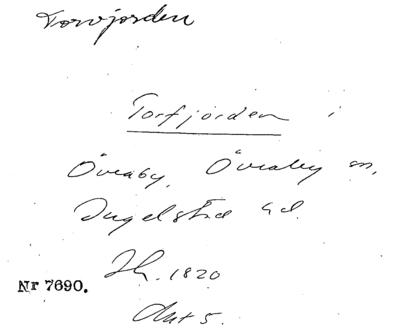 Torvjorden
Torfjorden i
Övraby, Övraby sn,
Ingelstad hd.
Sk. 1820
Nr 7690.
Akt 5.